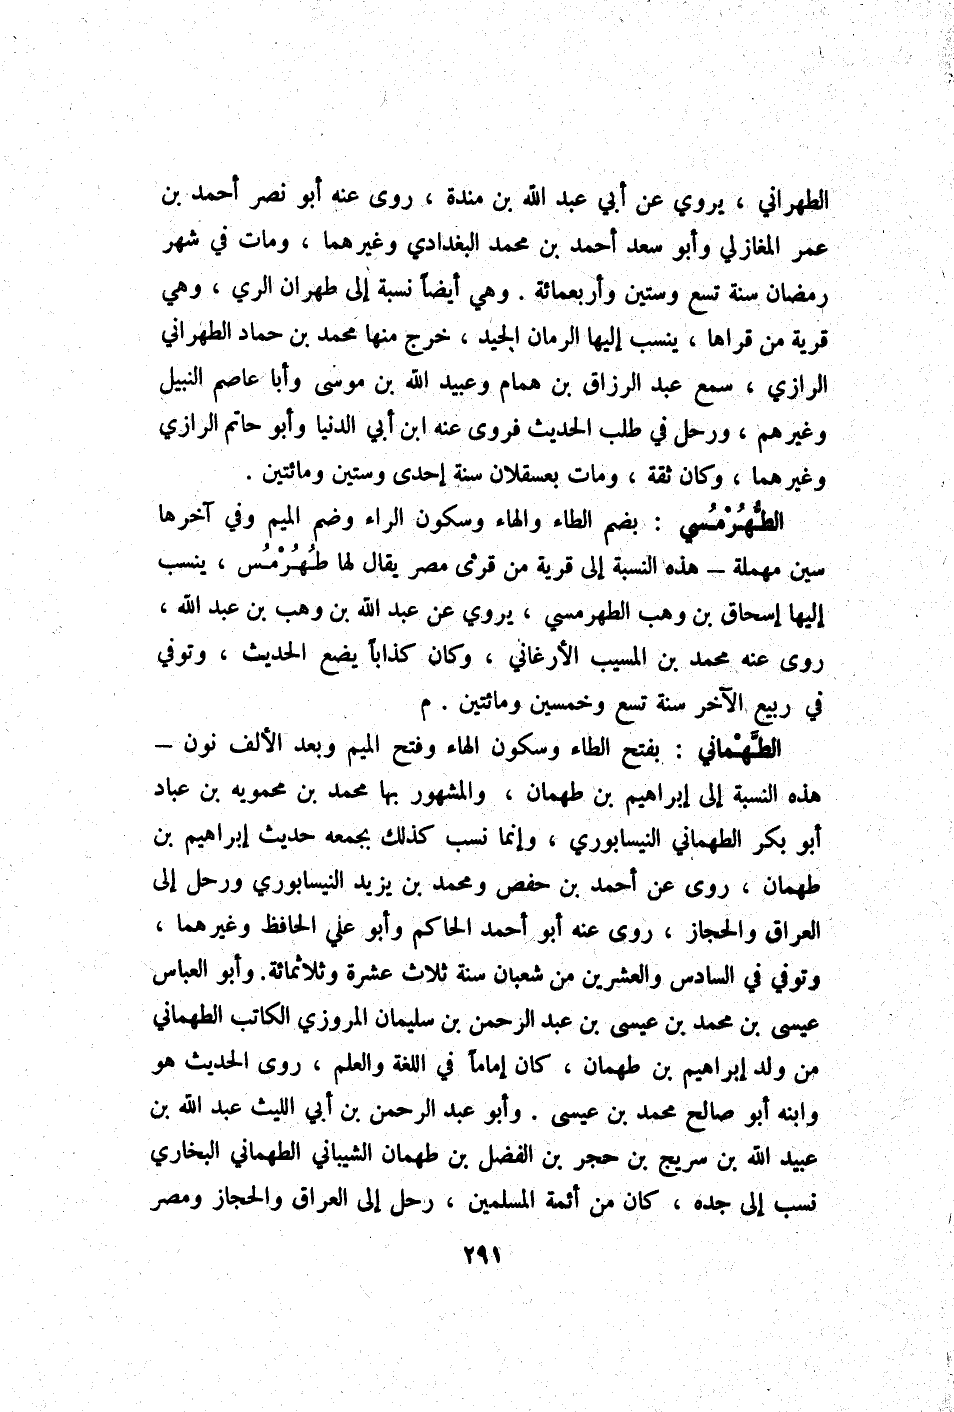 الطهراني ، يروي عن أبي عبد الله بن مندة ، روى عنه أبو نصر أحمد بن
عمر المغازلي وأبو سعد أحمد بن محمد البغدادي وغيرهما ، ومات في شهر
رمضان سنة تسع وستين وأربعمائة . وهي أيضاً نسبة إلى طهران الري ، وهي
قرية من قراها ، ينسب إليها الرمان الجيد ، خرج منها محمد بن حماد الطهراني
الرازي ، سمع عبد الرزاق بن همام وعبيد الله بن موسى وأبا عاصم النبيل
وغيرهم ، ورحل في طلب الحديث فروى عنه ابن أبي الدنيا وأبو حاتم الرازي
وغيرهما ، وكان ثقة ، ومات بعسقلان سنة إحدى وستين ومائتين .
الطُّهُرْمُسي : بضم الطاء والهاء وسكون الراء وضم الميم وفي آخرها
سين مهملة – هذه النسبة إلى قرية من قرى مصر يقال لها طُهُرْمُس ، ينسب
إليها إسحاق بن وهب الطهرمسي ، يروي عن عبد الله بن وهب بن عبد الله ،
روى عنه محمد بن المسيب الأرغاني ، وكان كذاباً يضع الحديث ، وتوفي
في ربيع الآخر سنة تسع وخمسين ومائتين . م
الطَّهْماني : بفتح الطاء وسكون الهاء وفتح الميم وبعد الألف نون –
هذه النسبة إلى إبراهيم بن طهمان ، والمشهور بها محمد بن محمويه بن عباد
أبو بكر الطهماني النيسابوري ، وإنما نسب كذلك بجمعه حديث إبراهيم بن
طهمان ، روى عن أحمد بن حفص ومحمد بن يزيد النيسابوري ورحل إلى
العراق والحجاز ، روى عنه أبو أحمد الحاكم وأبو علي الحافظ وغيرهما ،
وتوفي في السادس والعشرين من شعبان سنة ثلاث عشرة وثلاثمائة. وأبو العباس
عيسى بن محمد بن عيسى بن عبد الرحمن بن سليمان المروزي الكاتب الطهماني
من ولد إبراهيم بن طهمان ، كان إماماً في اللغة والعلم ، روى الحديث هو
وابنه أبو صالح محمد بن عيسى . وأبو عبد الرحمن بن أبي الليث عبد الله بن
عبيد الله بن سريج بن حجر بن الفضل بن طهمان الشيباني الطهماني البخاري
نسب إلى جده ، كان من أئمة المسلمين ، رحل إلى العراق والحجاز ومصر
٢٩١